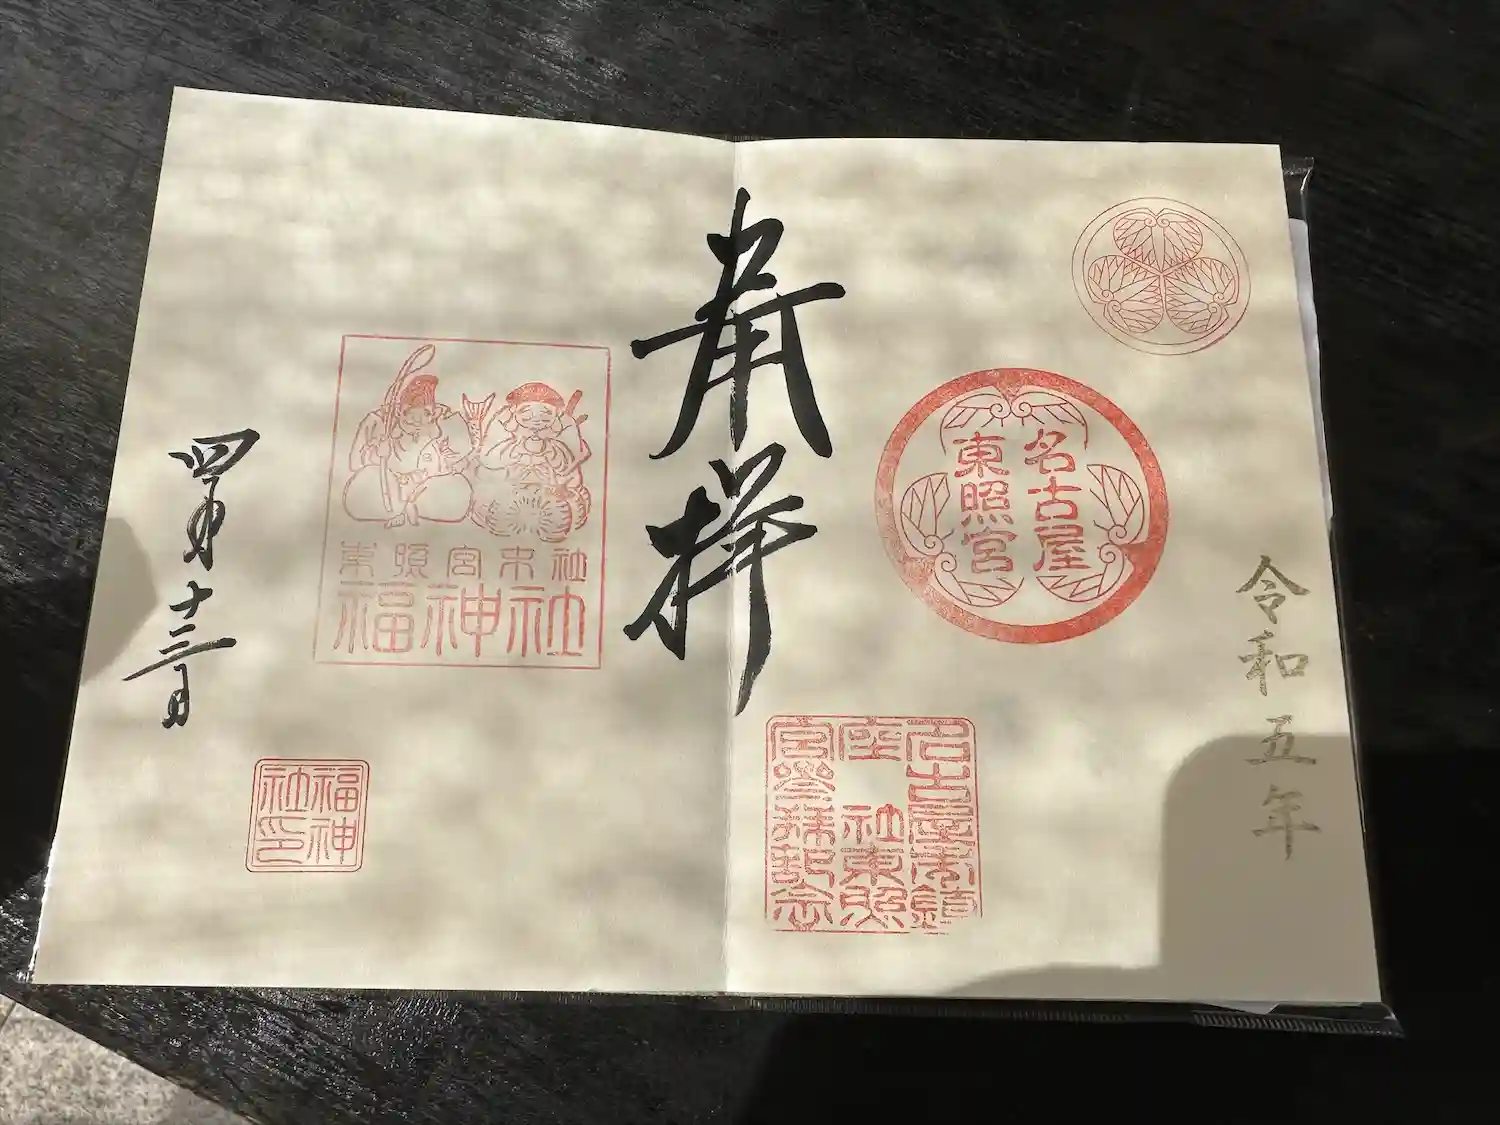 令和五年
名古屋
東照宮
名古屋市鎮
座 社東照
宮參拜記念
奉拝
東照宮末社
福神社
四月十三日
福神
社印